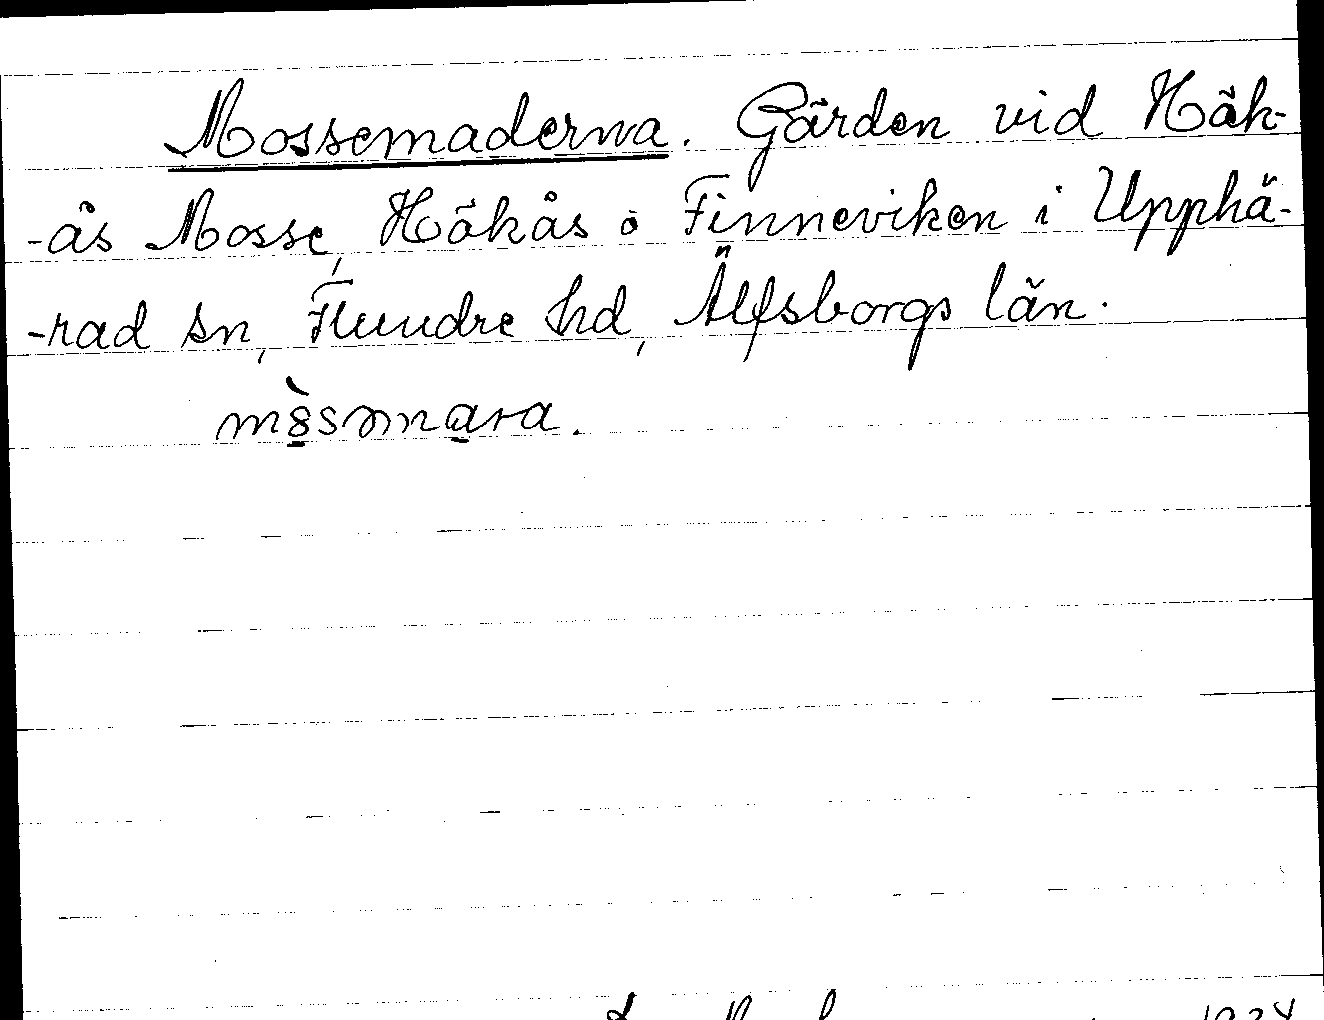 Mossemaderna. Gärden vid Håk-
-ås Mosse, Håkås o Finneviken i Upphä-
-rad sn, Flundre hd, Älfsborgs län.
1924